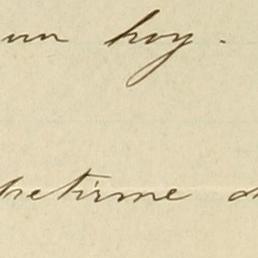 un hoy.
petirme d